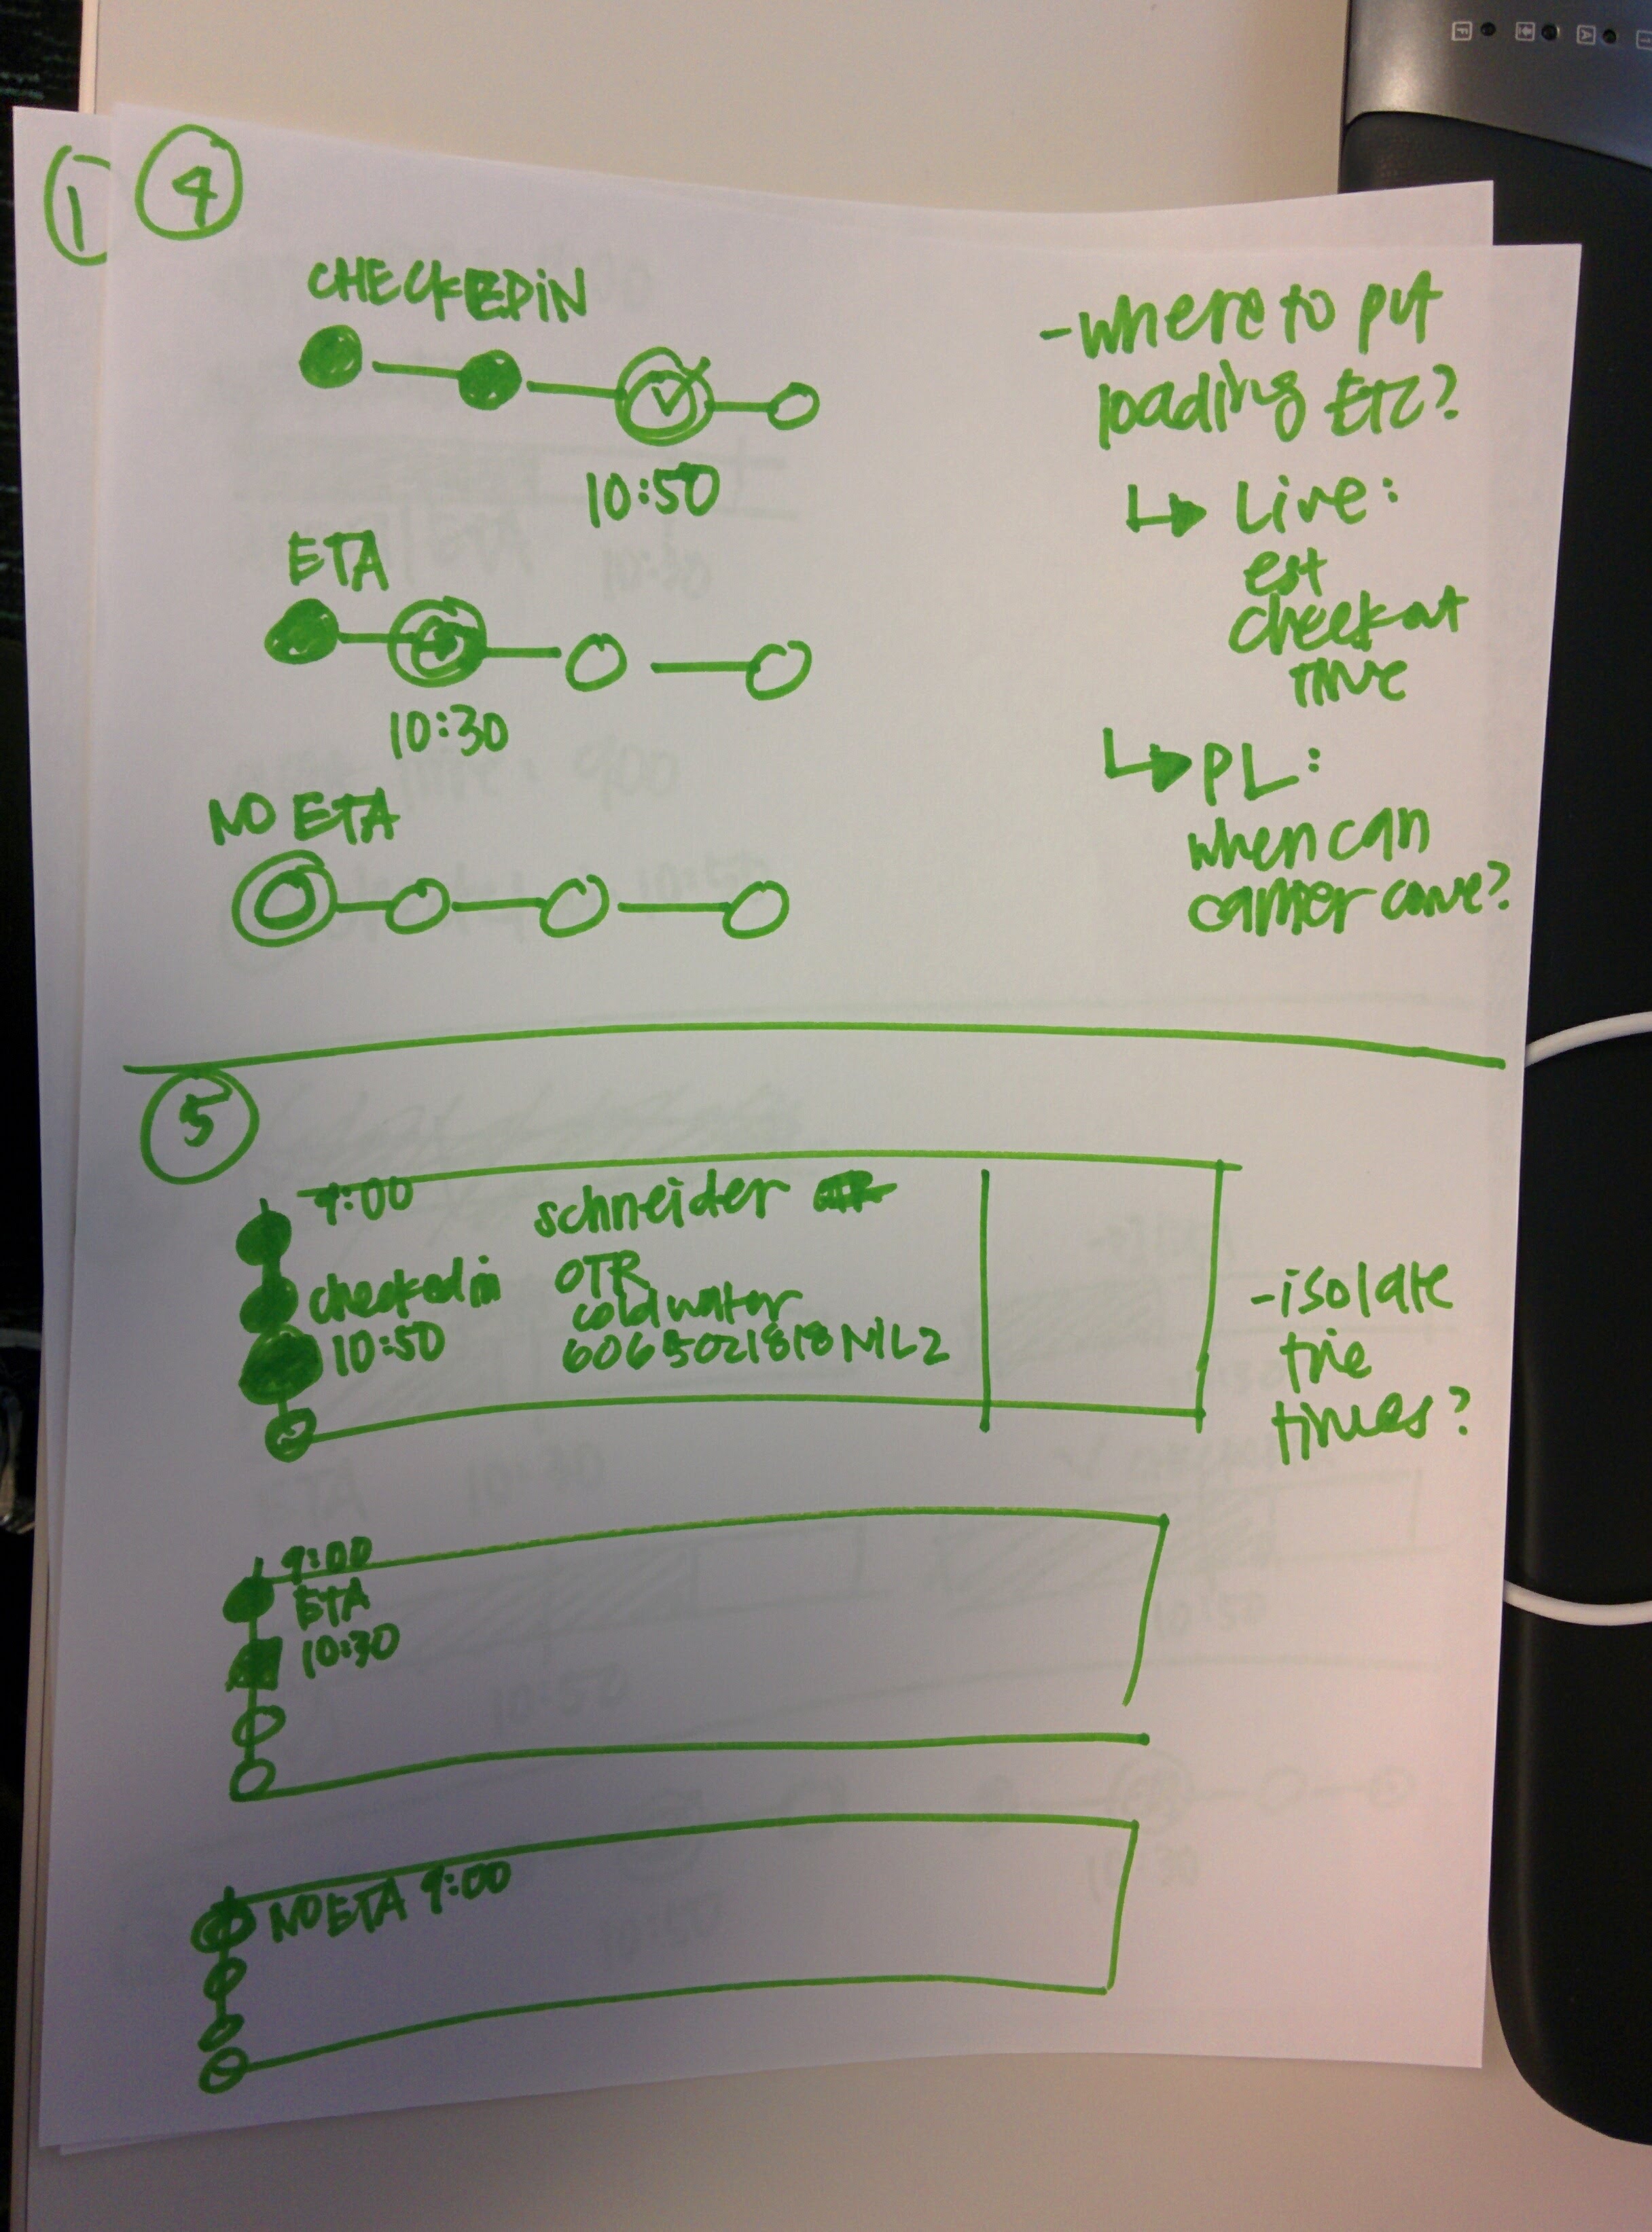 1
4
CHECKEDiN
10:50
ETA
10:30
NO ETA
-where to put
loading ETC?
↳ Live:
est
checkout
time
↳ PL:
when can
carrier come?
5
9:00
checked in
10:50
schneider
OTR
coldwater
6065021818NIL2
-isolate
the
times?
9:00
ETA
10:30
NO ETA 9:00